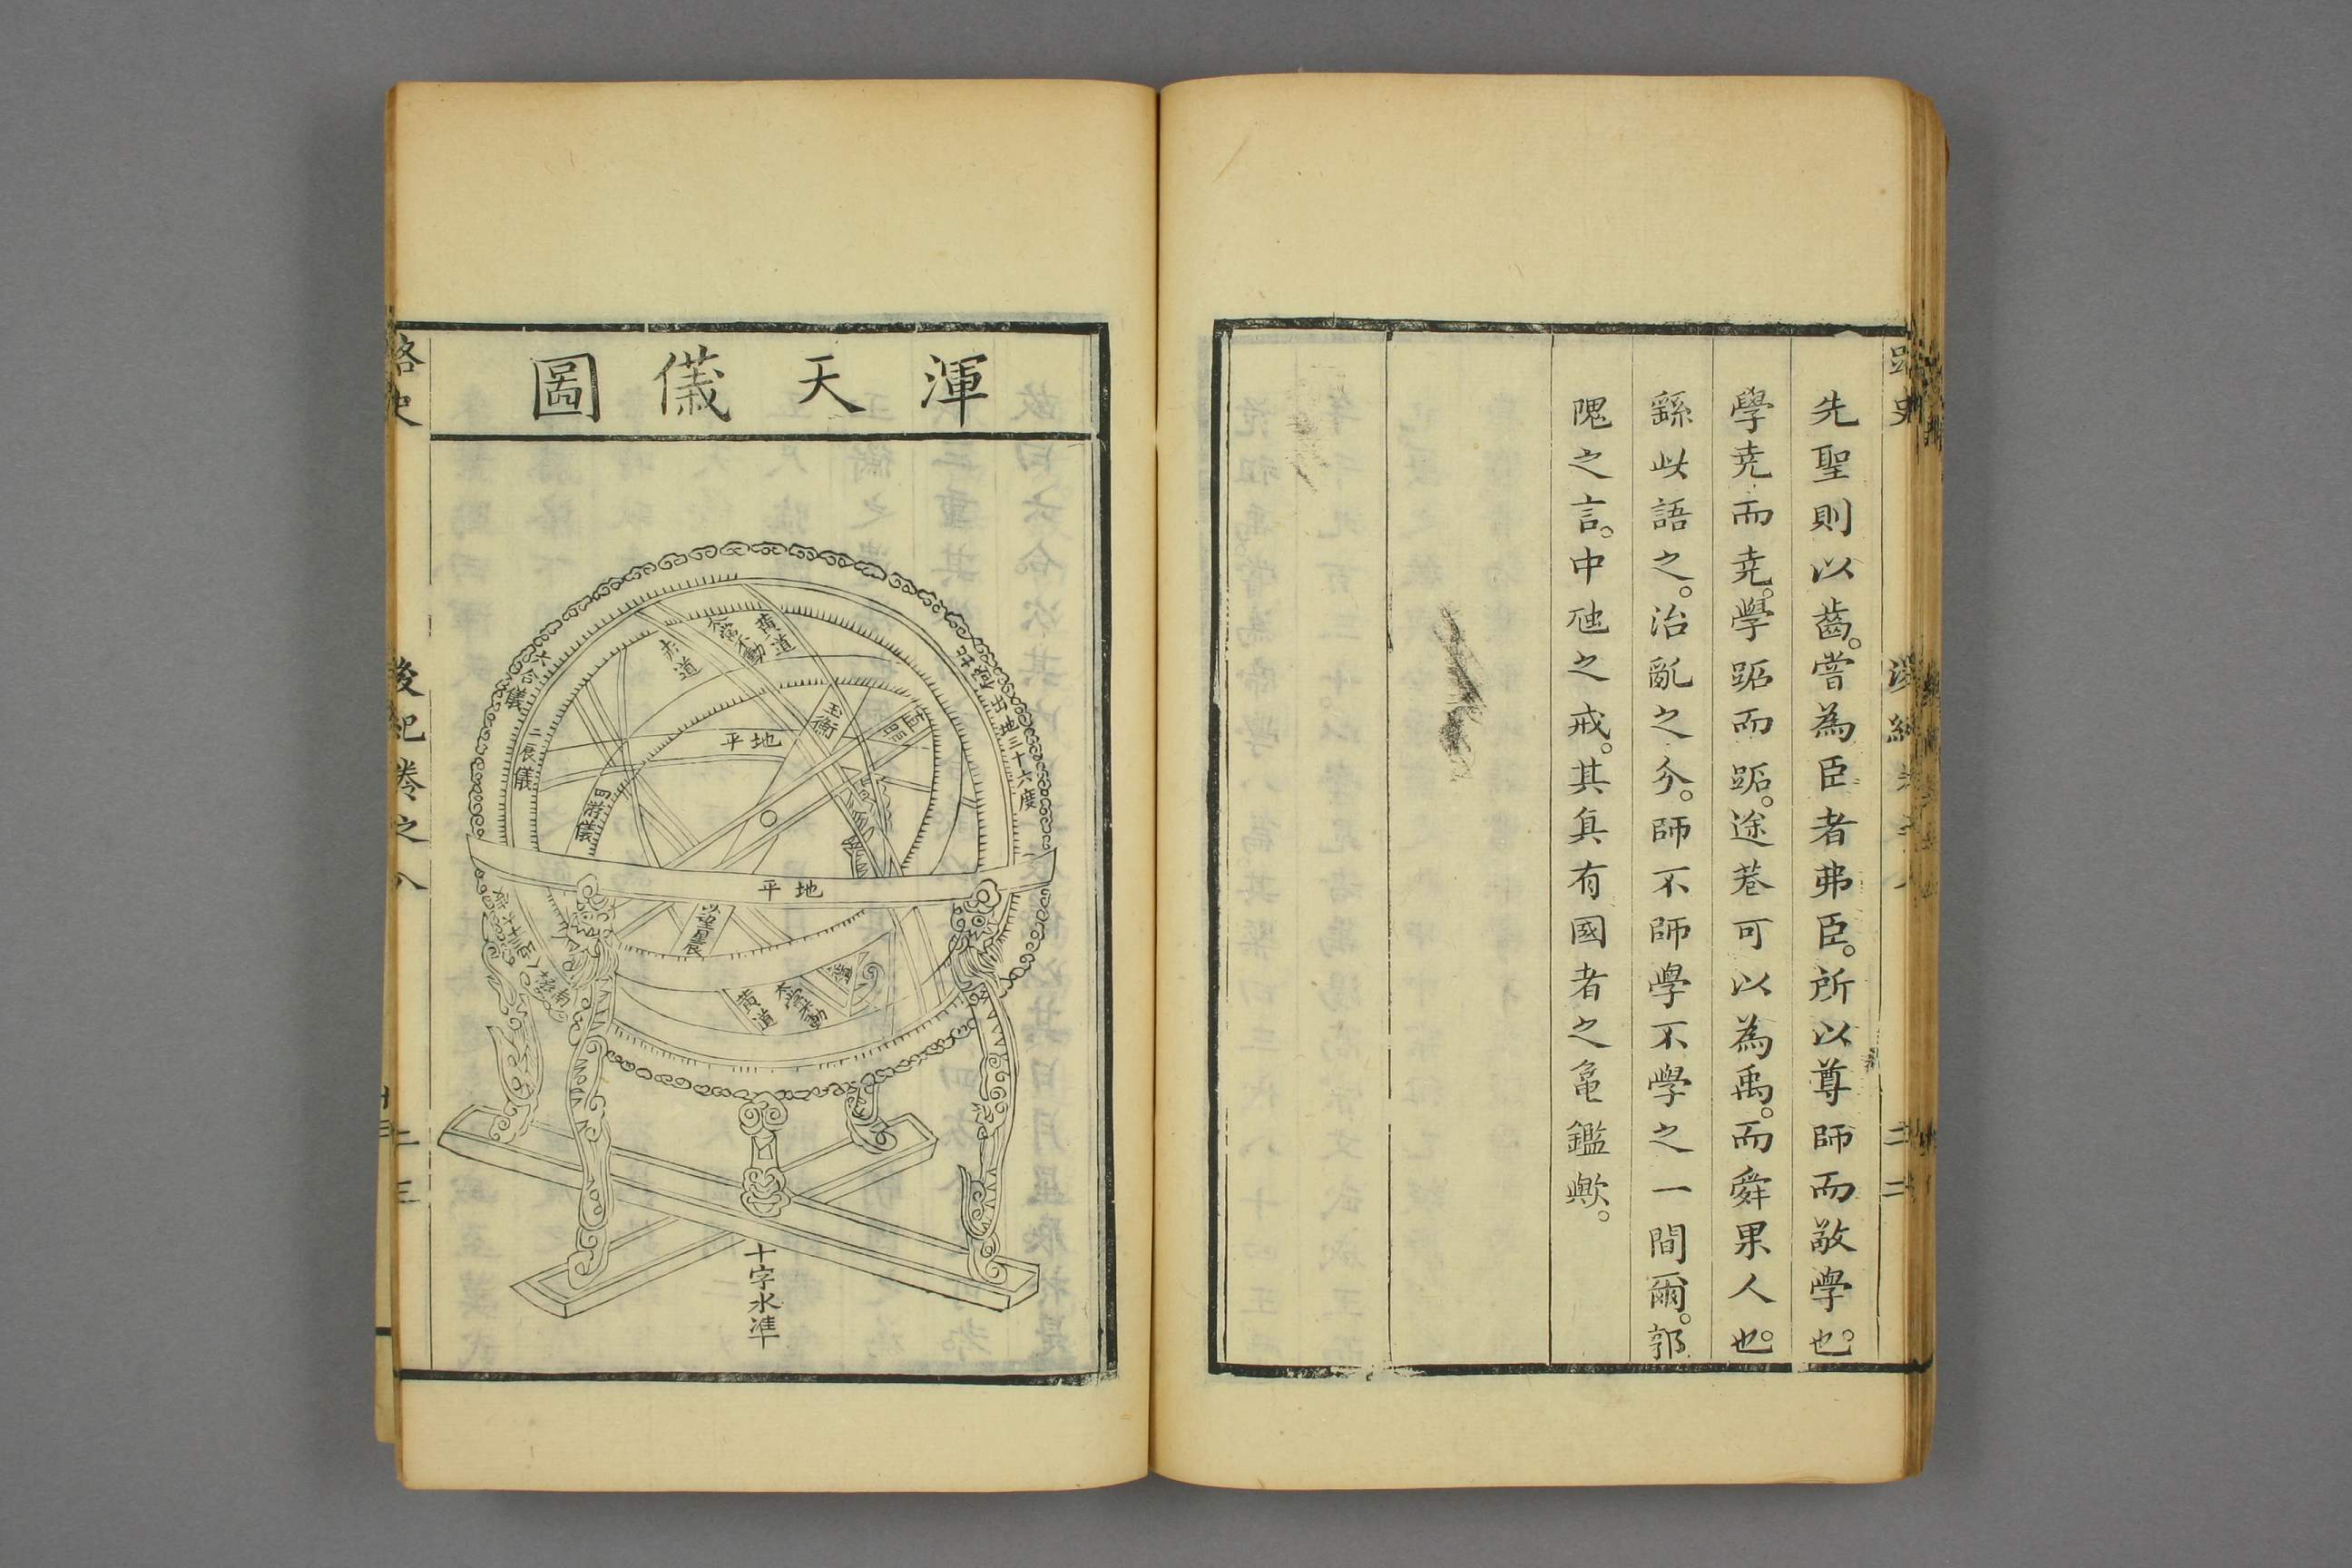 先聖則以齒。嘗為臣者弗臣。所以尊師而敬學也。
學堯而堯。學跖而跖。途巷可以為禹。而舜果人也。
繇此語之。治亂之分。師不師學不學之一間爾。郭
隗之言。中虺之戒。其真有國者之龜鑑歟。
渾天儀圖
黃道
赤道
玉衡
直距
地平
六合儀
三辰儀
四游儀
地三十六度
地平
以望星辰
黃道
十字水準
路史
後紀卷之八
二三